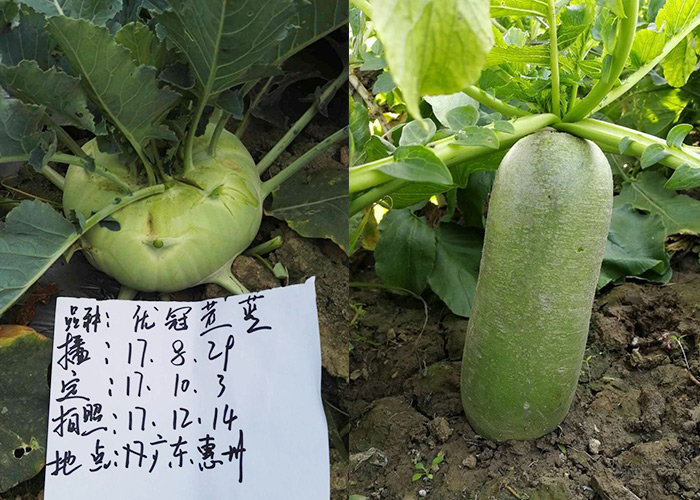 品种: 优冠苤蓝
播: 17.8.29
定: 17.10.3
拍照: 17.12.14
地点: 17广东惠州